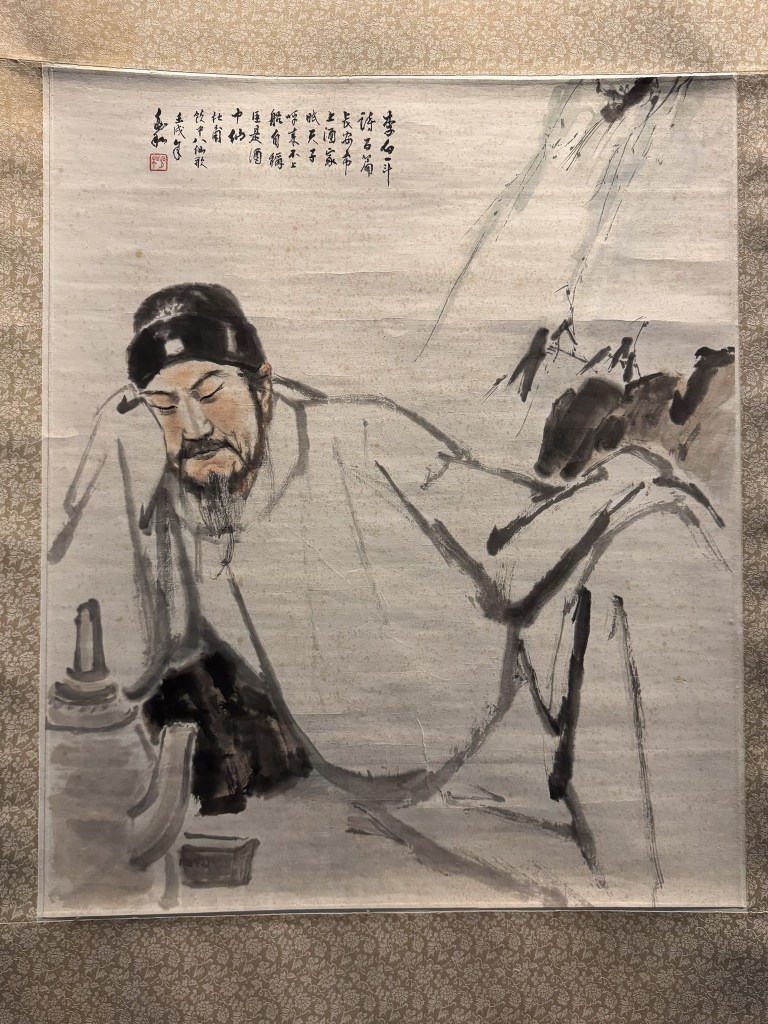 李白一斗
詩百篇
長安市
上酒家
眠天子
呼来不上
船自稱
臣是酒
中仙
杜甫
飲中八仙歌
壬戌年